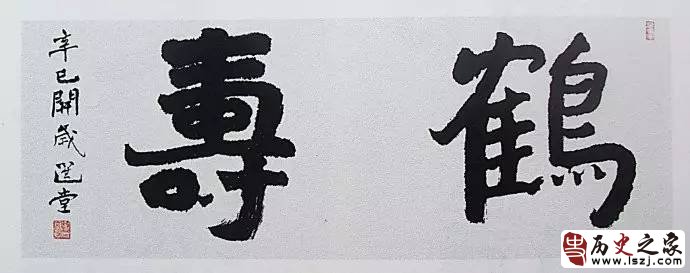 鶴壽
辛巳開歲選堂
历史之家
www.lszj.com